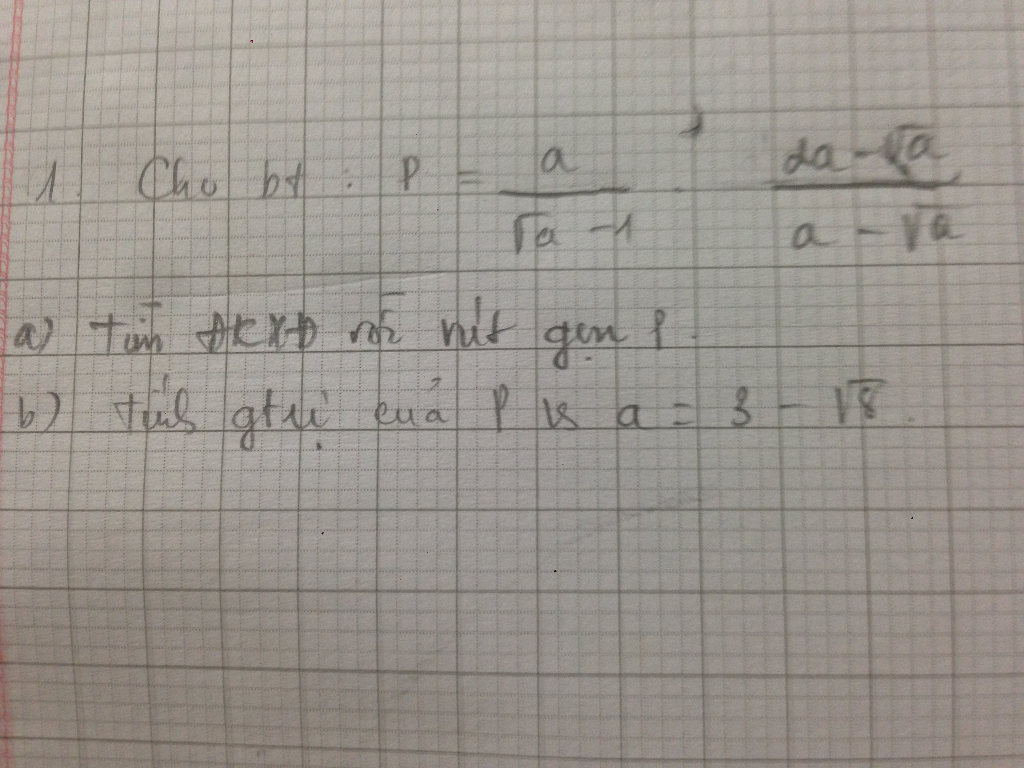 1. Cho bt : P = a/(√a - 1) - (2a - √a)/(a - √a)
a) tìm ĐKXĐ rồi rút gọn P.
b) tính gtrị của P vs a = 3 - √8.